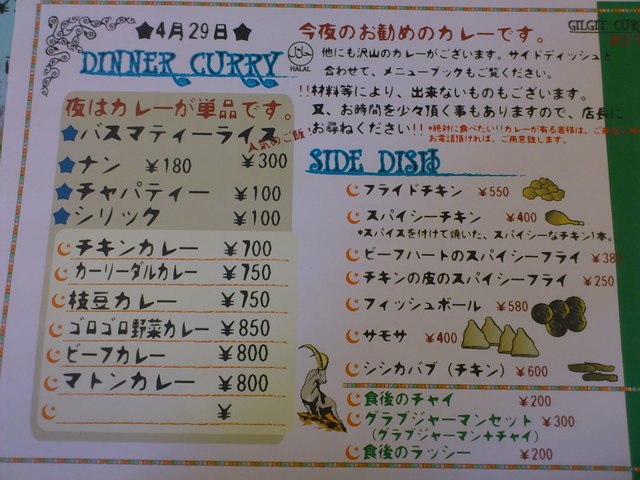 ★4月29日★
DINNER CURRY
夜はカレーが単品です。
★バスマティーライス
人気のご飯!
¥300
★ナン ¥180
★チャパティー ¥100
★シリック ¥100
チキンカレー ¥700
カーリーダルカレー ¥750
枝豆カレー ¥750
ゴロゴロ野菜カレー ¥850
ビーフカレー ¥800
マトンカレー ¥800
¥
今夜のお勧めのカレーです。
HALAL
他にも沢山のカレーがございます。サイドディッシュと
合わせて、メニューブックもご覧ください。
!!材料等により、出来ないものもございます。
又、お時間を少々頂く事もありますので、店長に
お尋ねください!!
*絶対に食べたい!!カレーが有る客様は、
お電話頂ければ、ご用意致します。
SIDE DISH
フライドチキン ¥550
スパイシーチキン ¥400
*スパイスを付けて焼いた、スパイシーなチキン1本。
ビーフハートのスパイシーフライ ¥38
チキンの皮のスパイシーフライ ¥250
フィッシュボール ¥580
サモサ ¥400
シシカバブ(チキン) ¥600
食後のチャイ ¥200
グラブジャーマンセット ¥300
(グラブジャーマン+チャイ)
食後のラッシー ¥200
GILGIT CUR